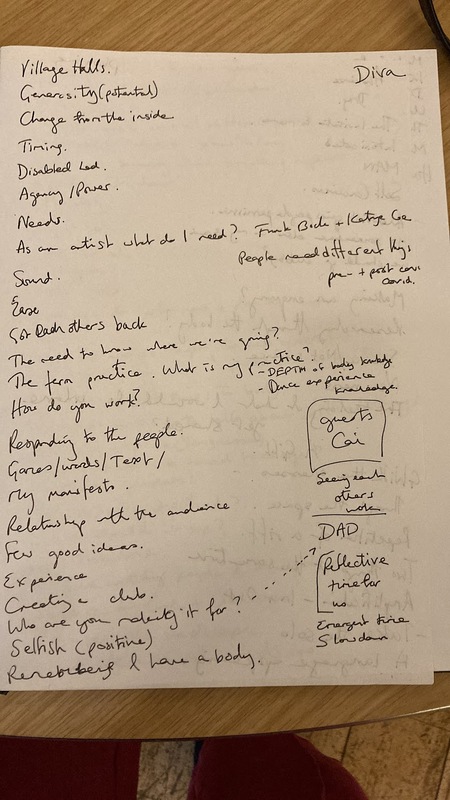 Diva
Village Halls.
Generosity (potential)
Change from the inside
Timing.
Disabled Led.
Agency / Power.
Needs.
As an artist what do I need?
People need different things
pre- + post covi
covid.
Sound.
Ease
Got Each others back
The need to know where we're going?
The term practice. What is my practice?
- DEPTH of body knowledge
- Dance experience
knowledge.
How do you work?
Responding to the people.
Games/words/Text/
My manifesto.
guests
Cai
Seeing each
others
work
Relationship with the audience
Few good ideas.
Experience
Creating a club.
Who are you making it for?
DAD
Reflective
time for
us
Emergent time
Slow down
Selfish (positive)
Remembering I have a body.